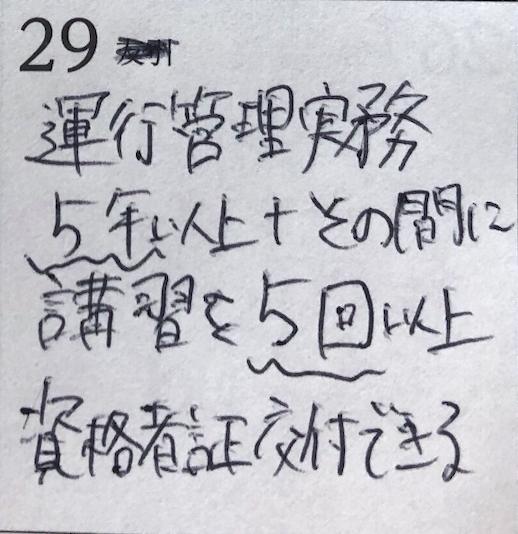 29
運行管理実務
5年以上+その間に
講習を5回以上
資格者証交付できる